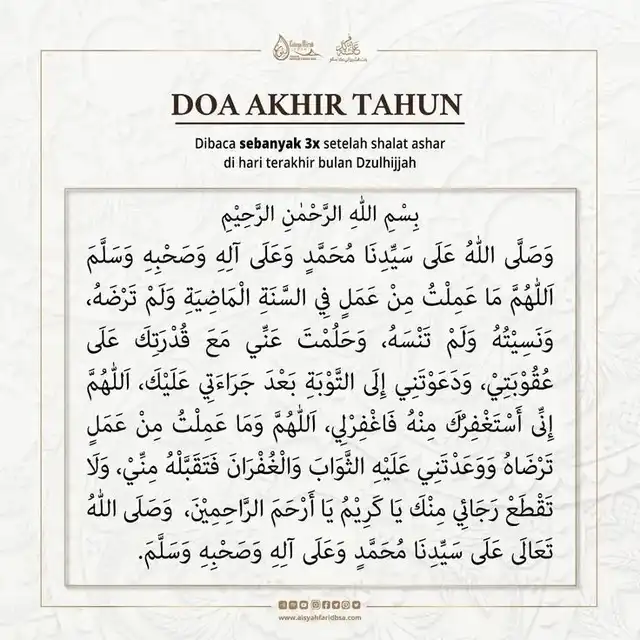 DOA AKHIR TAHUN
Dibaca sebanyak 3x setelah shalat ashar
di hari terakhir bulan Dzulhijjah
بِسْمِ اللهِ الرَّحْمٰنِ الرَّحِيْمِ
وَصَلَّى اللهُ عَلَى سَيِّدِنَا مُحَمَّدٍ وَعَلَى آلِهِ وَصَحْبِهِ وَسَلَّمَ
اَللّٰهُمَّ مَا عَمِلْتُ مِنْ عَمَلٍ فِي السَّنَةِ الْمَاضِيَةِ وَلَمْ تَرْضَهُ،
وَنَسِيْتُهُ وَلَمْ تَنْسَهُ، وَحَلُمْتَ عَنِّي مَعَ قُدْرَتِكَ عَلَى
عُقُوْبَتِيْ، وَدَعَوْتَنِي إِلَى التَّوْبَةِ بَعْدَ جَرَاءَتِي عَلَيْكَ، اَللّٰهُمَّ
إِنِّى أَسْتَغْفِرُكَ مِنْهُ فَاغْفِرْلِي، اَللّٰهُمَّ وَمَا عَمِلْتُ مِنْ عَمَلٍ
تَرْضَاهُ وَوَعَدْتَنِي عَلَيْهِ الثَّوَابَ وَالْغُفْرَانَ فَتَقَبَّلْهُ مِنِّيْ، وَلَا
تَقْطَعْ رَجَائِي مِنْكَ يَا كَرِيْمُ يَا أَرْحَمَ الرَّاحِمِيْنَ، وَصَلَى اللهُ
تَعَالَى عَلَى سَيِّدِنَا مُحَمَّدٍ وَعَلَى آلِهِ وَصَحْبِهِ وَسَلَّمَ.
www.aisyahfaridbsa.com